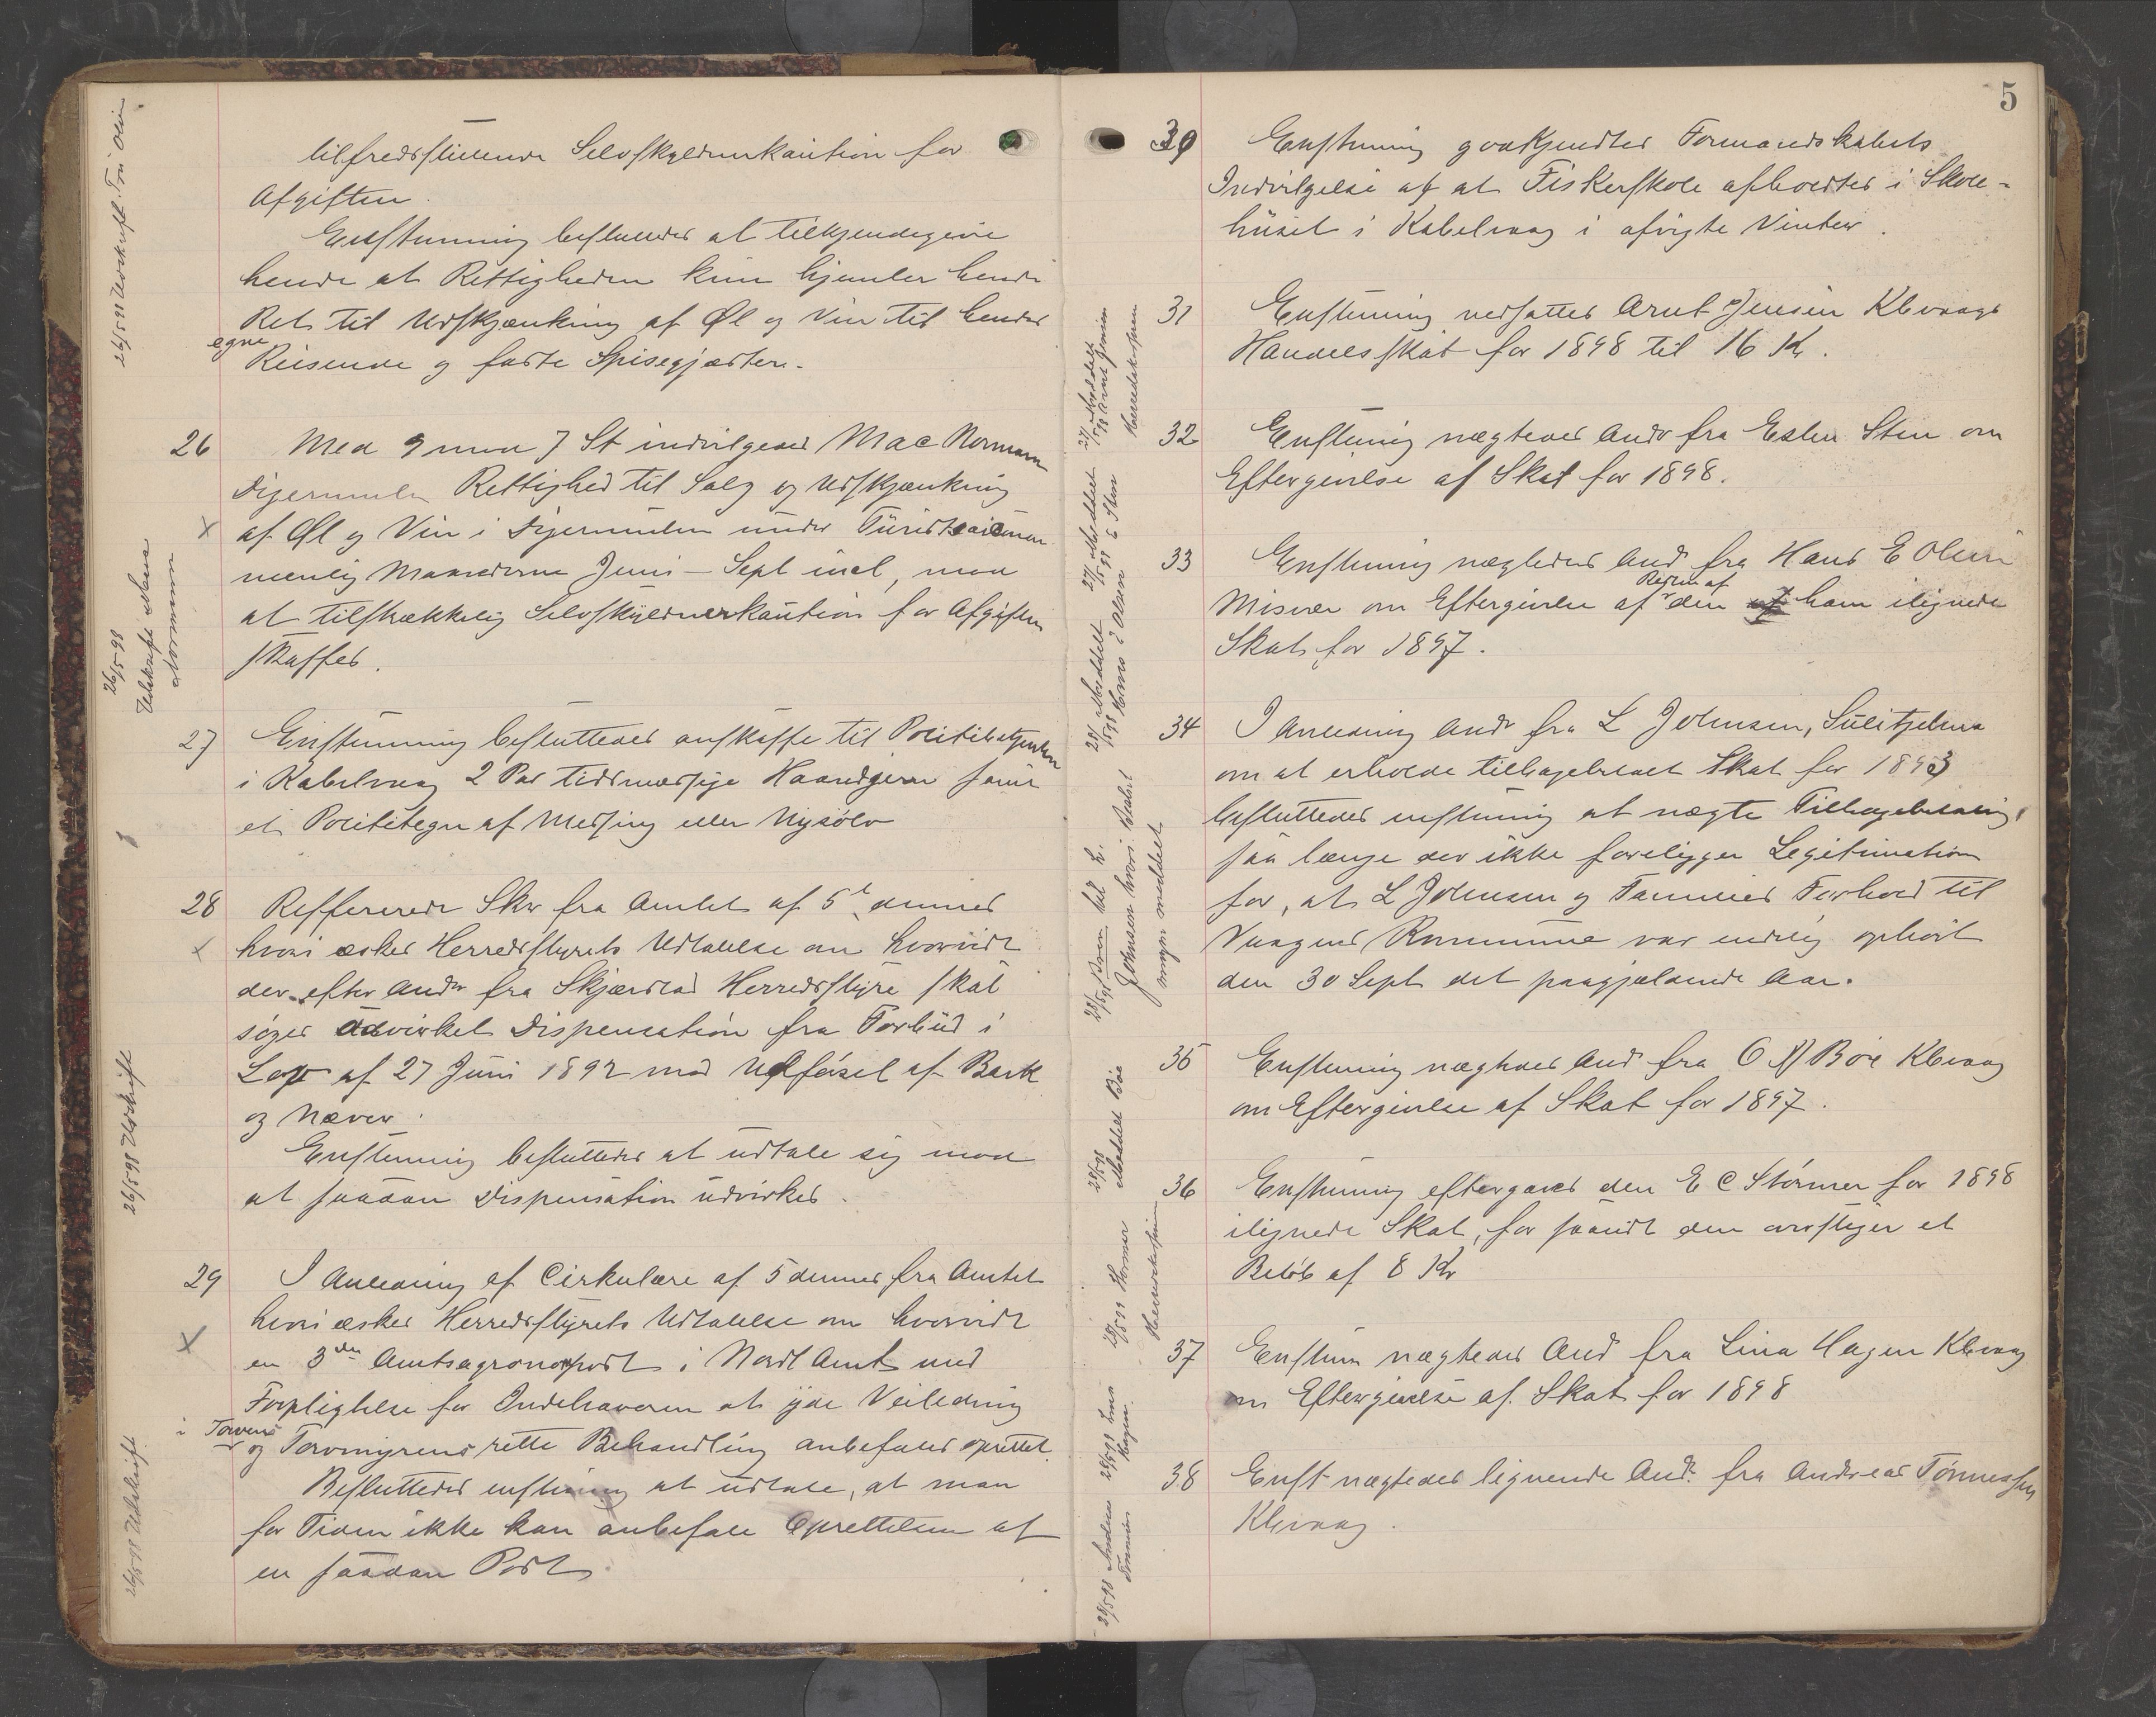 tilfredsstillende Selvskyldnerkaution for
Afgiften.
Enstemmig besluttedes at tilkjendegive
hende at Rettigheden kun hjemler hende
Ret til Udskjænkning af Øl og Vin til hendes
egne
Reisende og faste Spisegjæster.
26 Med 9 mod 7 St indvilgedes Mac Normann
Digermulen Rettighed til Salg og Udskjænkning
af Øl og Vin i Digermulen under Turistsaisonen
nemlig Maanederne Juni – Sept incl, mod
at tilstrækkelig Selvskyldnerkaution for Afgiften
skaffes.
27 Enstemmig besluttedes anskaffe til Politibetjenten
i Kabelvaag 2 Par tidsmæssige Haandjern samt
et Polititegn af Messing eller Nysølv
28 Reffererede Skr fra Amtet af 5te dennes
hvori æskes Herredsstyrets Udtalelse om hvorvidt
der efter Andr fra Skjærstad Herredsstyre skal
søges udvirket Dispensation fra Forbud i
Lov af 27 Juni 1892 mod Udførsel af Bark
og Næver.
Enstemmig besluttedes at udtale sig mod
at saadan Dispensation udvirkes.
29 I Anledning af Cirkulære af 5 dennes fra Amtet
hvori æskes Herredsstyrets Udtalelse om hvorvidt
en 3die Amtsagronompost i Nordl Amt med
Forpligtelse for Indehaveren at yde Veiledning
i Torvens
og Torvmyrens rette Behandling anbefales oprettet.
Besluttedes enstemmig at udtale, at man
for Tiden ikke kan anbefale Oprettelsen af
en saadan Post.
26/5 98 Udskrift
26/5 98
Udskrift Mac
Normann
26/5 98 Udskrift
26/5 98 Udskrift
5
30 Enstemmig godkjendtes Formandskabets
Indvilgelse af at Fiskerskole afholdtes i Skole-
huset i Kabelvaag i afvigte Vinter.
31 Enstemmig nedsattes Arnt Jensen Klvaags
Handelsskat for 1898 til 16 Kr.
32 Enstemmig nægtedes Andr fra Esten Sten om
Eftergivelse af Skat for 1898.
33 Enstemmig nægtedes And fra Hans E Olsen
Resten af
Misvær om Eftergivelse af den ham ilignede
Skat for 1897.
34 I Anledning Andr fra L Johnsen, Sulitjelma
om at erholde tilbagebetalt Skat for 1893
besluttedes enstemmig at nægte Tilbagebetaling,
saa længe der ikke foreligger Legitimation
for, at L Johnsen og Families Forhold til
Vaagens Kommune var endelig ophørt
den 30 Sept det paagjældende Aar.
35 Enstemmig nægtedes And fra O N Bøe Klvaag
om Eftergivelse af Skat for 1897.
36 Enstemmig eftergaves den E C Størmer for 1898
ilignede Skat, for saavidt den overstiger et
Beløb af 8 Kr
37 Enstem nægtedes And fra Lina Hagen Klvaag
om Eftergivelse af Skat for 1898
38 Enst nægtedes lignende And. fra Andreas Tønnessen
Klvaag.
27/5 98 Meddelt
Arnt Jensen
27/5 98 Meddelt
E Sten
28/5 98 Meddelt
Hans E Olsen
28/5 98 Brev til L.
Johnsen hvori
meddelt
28/5 98
Meddelt Bøe
28/5 98 Lina
Hagen.
28/5 98 Andreas